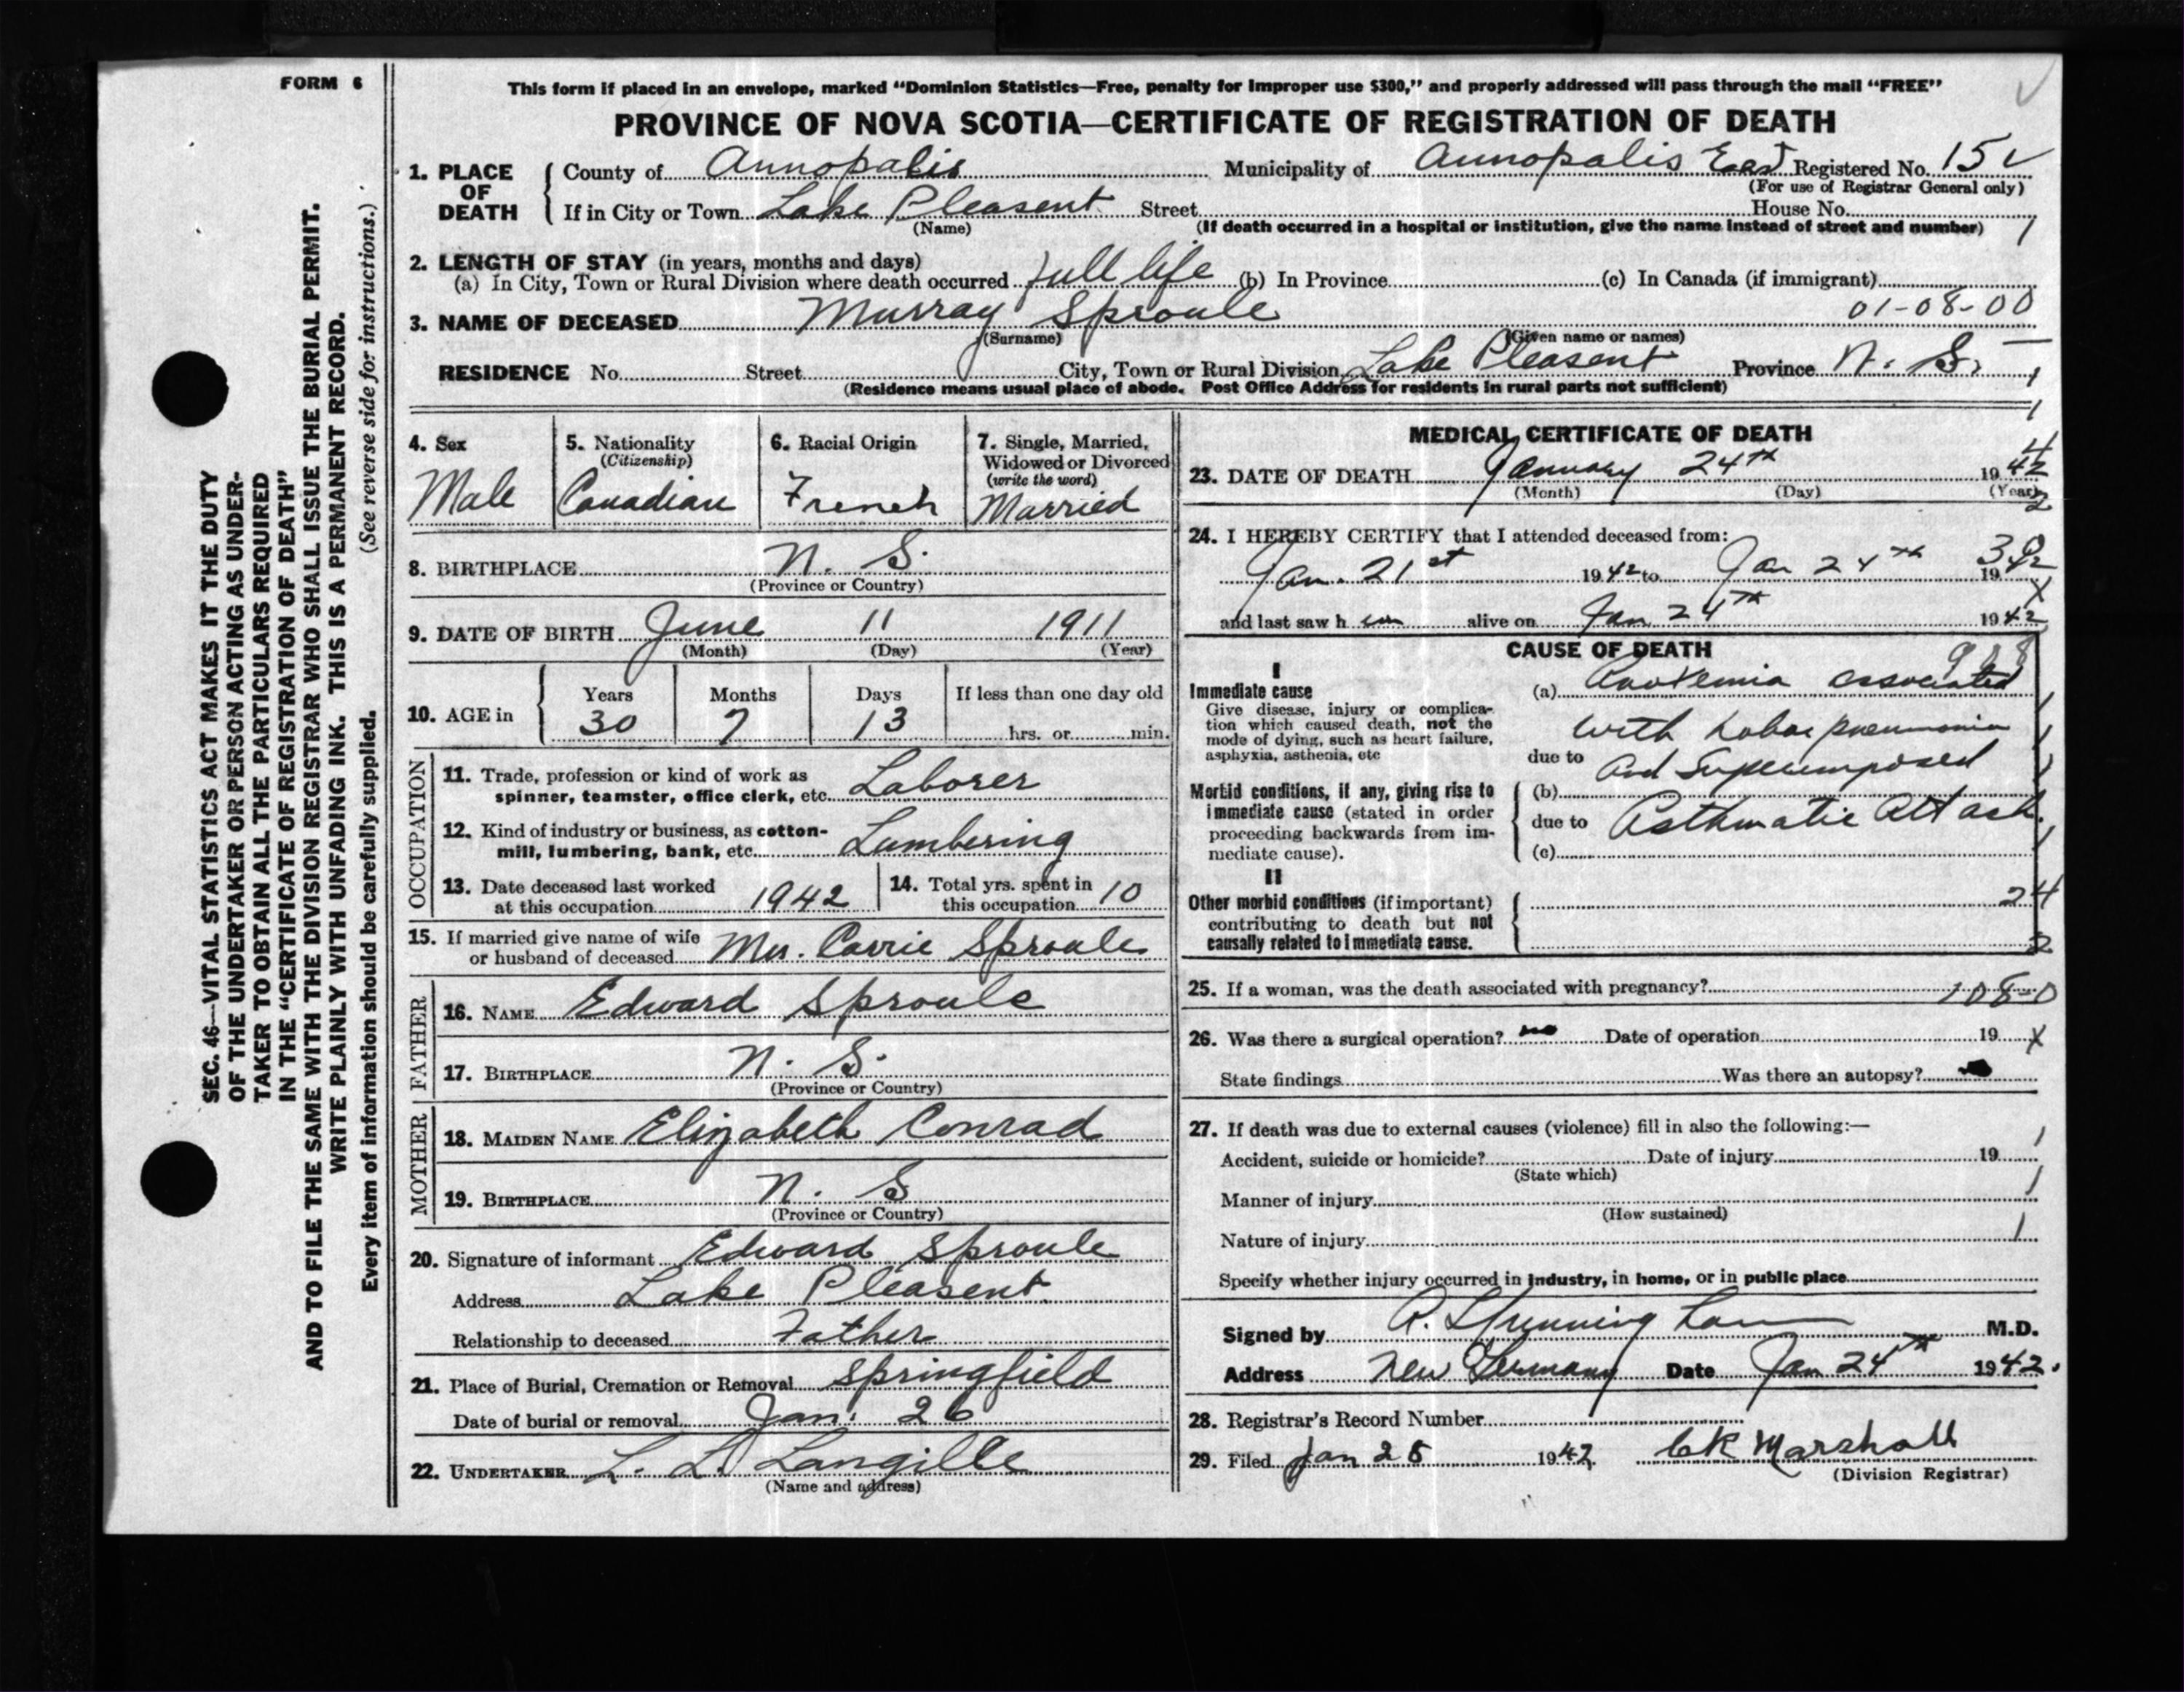 FORM 6
This form if placed in an envelope, marked "Dominion Statistics—Free, penalty for improper use $300," and properly addressed will pass through the mail "FREE"
PROVINCE OF NOVA SCOTIA—CERTIFICATE OF REGISTRATION OF DEATH
1. PLACE OF DEATH County of Annopalis Municipality of Annopalis East Registered No. 15
(For use of Registrar General only)
If in City or Town Lake Pleasent Street House No.
(Name) (If death occurred in a hospital or institution, give the name instead of street and number)
2. LENGTH OF STAY (in years, months and days)
(a) In City, Town or Rural Division where death occurred full life (b) In Province (c) In Canada (if immigrant)
01-08-00
3. NAME OF DECEASED Murray Sproule
(Surname) (Given name or names)
RESIDENCE No. Street City, Town or Rural Division Lake Pleasent Province N. S.
(Residence means usual place of abode. Post Office Address for residents in rural parts not sufficient)
4. Sex
Male
5. Nationality
(Citizenship)
Canadian
6. Racial Origin
French
7. Single, Married,
Widowed or Divorced
(write the word)
Married
8. BIRTHPLACE N. S.
(Province or Country)
9. DATE OF BIRTH June 11 1911
(Month) (Day) (Year)
10. AGE in Years Months Days If less than one day old
30 7 13 hrs. or min.
OCCUPATION
11. Trade, profession or kind of work as
spinner, teamster, office clerk, etc. Laborer
12. Kind of industry or business, as cotton-
mill, lumbering, bank, etc. Lumbering
13. Date deceased last worked
at this occupation 1942
14. Total yrs. spent in
this occupation 10
15. If married give name of wife
or husband of deceased Mrs. Carrie Sproule
FATHER
16. NAME Edward Sproule
17. BIRTHPLACE N. S.
(Province or Country)
MOTHER
18. MAIDEN NAME Elizabeth Conrad
19. BIRTHPLACE N. S
(Province or Country)
20. Signature of informant Edward Sproule
Address Lake Pleasent
Relationship to deceased Father
21. Place of Burial, Cremation or Removal Springfield
Date of burial or removal Jan. 26
22. UNDERTAKER L. L. Langille
(Name and address)
MEDICAL CERTIFICATE OF DEATH
23. DATE OF DEATH January 24th 1942
(Month) (Day) (Year)
24. I HEREBY CERTIFY that I attended deceased from:
Jan. 21st 1942 to Jan 24th 19
and last saw h im alive on Jan 24th 1942
CAUSE OF DEATH
I
Immediate cause
Give disease, injury or complica-
tion which caused death, not the
mode of dying, such as heart failure,
asphyxia, asthenia, etc
(a) Anoxemia associated
with Lobar pneumonia
due to And Superimposed
Morbid conditions, if any, giving rise to
immediate cause (stated in order
proceeding backwards from im-
mediate cause).
(b)
due to Asthmatic Attack.
(c)
II
Other morbid conditions (if important)
contributing to death but not
causally related to immediate cause.
24
2
25. If a woman, was the death associated with pregnancy? 108-0
26. Was there a surgical operation? no Date of operation 19 X
State findings Was there an autopsy?
27. If death was due to external causes (violence) fill in also the following:—
Accident, suicide or homicide? Date of injury 19
(State which)
Manner of injury
(How sustained)
Nature of injury
Specify whether injury occurred in industry, in home, or in public place
Signed by M.D.
Address New Germany Date Jan 24th 1942.
28. Registrar's Record Number
29. Filed Jan 28 1942. CK Marshall
(Division Registrar)
SEC. 46—VITAL STATISTICS ACT MAKES IT THE DUTY
OF THE UNDERTAKER OR PERSON ACTING AS UNDER-
TAKER TO OBTAIN ALL THE PARTICULARS REQUIRED
IN THE "CERTIFICATE OF REGISTRATION OF DEATH"
AND TO FILE THE SAME WITH THE DIVISION REGISTRAR WHO SHALL ISSUE THE BURIAL PERMIT.
WRITE PLAINLY WITH UNFADING INK. THIS IS A PERMANENT RECORD.
Every item of information should be carefully supplied. (See reverse side for instructions.)